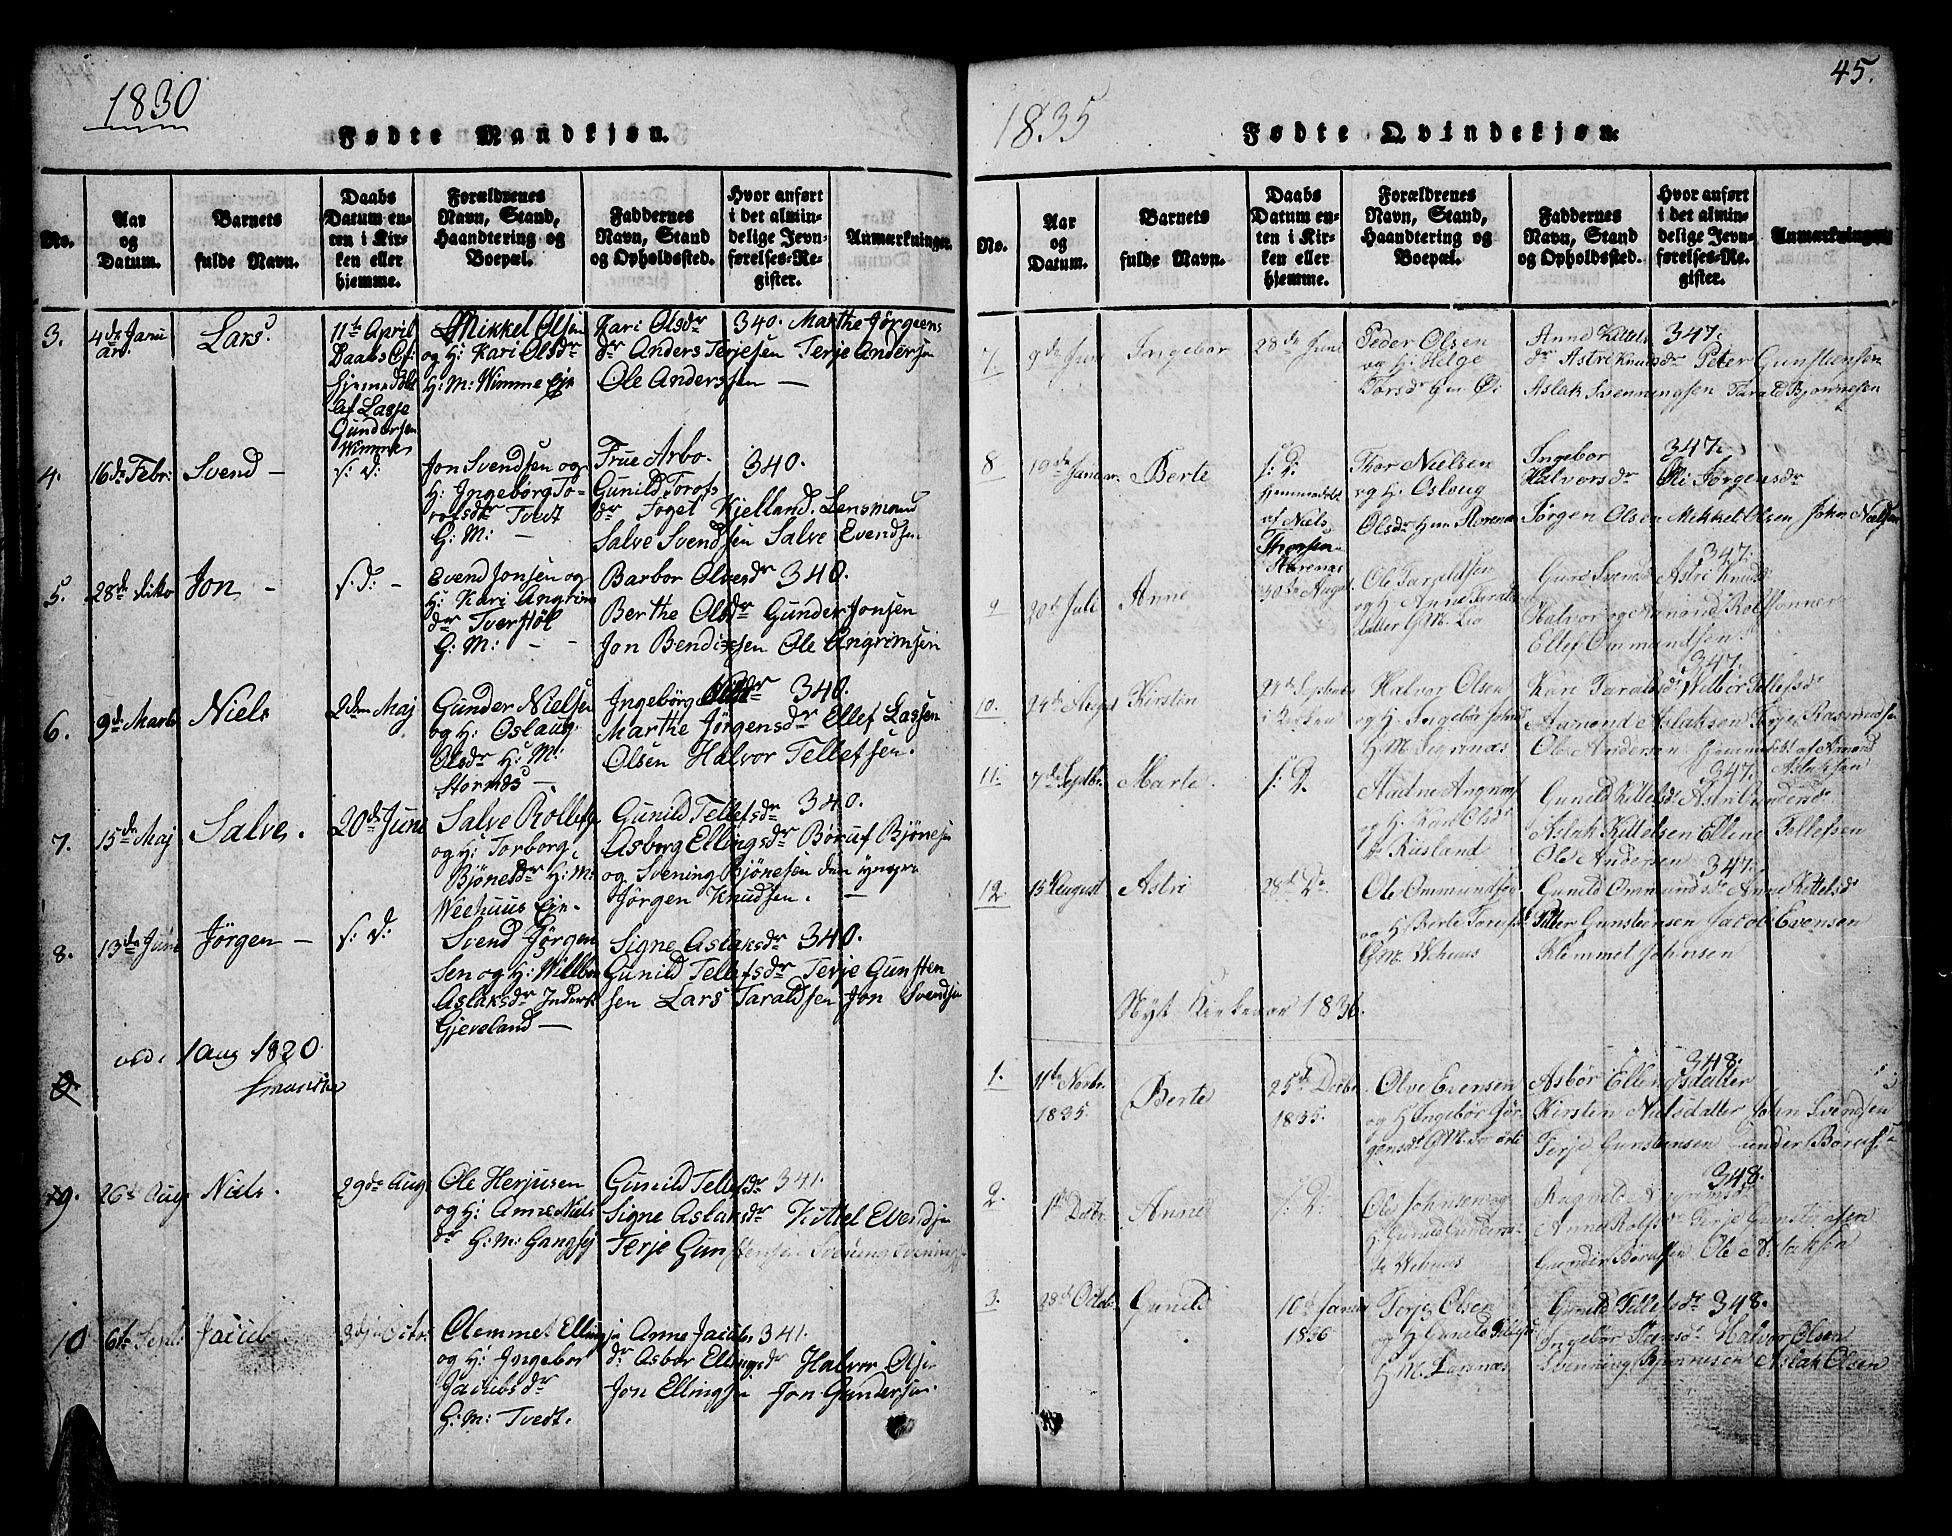 1830
Fødte Mandkjøn.
No.
Aar og Datum.
Barnets fulde Navn.
Daabs Datum enten i Kirken eller hjemme.
Forældrenes Navn, Stand, Haandtering og Boepæl.
Faddernes Navn, Stand og Opholdssted.
Hvor anført i det almindelige Jevnførelses-Register.
Anmærkninger.
3. 4de Janu Lars 11te April Mikkel Olsen Kari Olsdr 340. Marthe Jørgens
og H: Kari Olsdr dr Anders Terjesen Terje Andersen
H: M: Wimme Eje Ole Anderssen —
af Lasse
Gundersen
Wimme
4. 16de Febr: Svend — s: d: Jon Svendsen og Frue Arbo. 340.
H: Ingeborg To- Gunild Torofs
rofsdr Tvedt dr Foget Kielland. Lensmand
H: M: — Salve Svendsen Salve Evendsen
5. 28de Jon — s. d: — Evend Jonsen og Barbor Olvesdr 340.
H: Kari Angrim Berthe Olsdr Gunder Jonsen
dr Tverstøl
H: M: — — Jon Bendixsen Ole Angrimsen
6. 9de Marts Niels 2den Maj Gunder Nielsen Ingebørg Olsdr 340.
og H: Oslaug Marthe Jørgensdr Ellef Lassen
Olsdr H: M: Olsen Halvor Tellefsen.
Stornæs —
7. 15de Maj Salve. 20de June Salve Rollefs Gunild Tellefsdr 340.
og H: Torborg Asborg Ellingsdr Børuf Bjønesen
Bjønesdr H: M: og Svening Bjønesen den yngre
Weehuus Eje. Jørgen Knudsen. —
8. 13de June Jørgen — s: d: Svend Jørgen Signe Aslaksdr 340.
sen og H: Willbor Gunild Tellefsdr Terje Gunsten
Aslaksdr sen Lars Taraldsen Jon Svendsen
Gjeveland —
1 Aug 1820.
9. 26de Aug Niels. 29de Aug Ole Herjusen Gunild Tellefsdr 341.
og H: Anne Niels Signe Aslaksdr Kittel Evendsen
dr H: M: Gangsej Terje Gunstensen
10 6te Sept: Jacob 3dje Octbr Clemmet Ellingsen Anne Jacobs 341.
og H: Ingebor dr Asbor Ellingsdr Halvor Olsen
Jacobsdr Jon Ellingsen Jon Gundersen.
H: M: Tvedt.
45.
1835
Fødte Qvindekjøn.
No.
Aar og Datum.
Barnets fulde Navn.
Daabs Datum enten i Kirken eller hjemme.
Forældrenes Navn, Stand, Haandtering og Boepæl.
Faddernes Navn, Stand og Opholdssted.
Hvor anført i det almindelige Jevnførelses-Register.
Anmærkninger.
7 9de Juni Ingebør 28de Juni Peder Olsen Anne Kittels 347.
og H: Helge dr Astri Knudsdr Peter Gunstensen
Torsdr Aslak Svenningsen Tarald Bjønnesen
8 19de Januar. Berte s: D: Thor Nielsen Ingebor 347.
Hjemmedøbt og H. Oslaug Halvorsdr Oli Jørgensdr
af Niels Olsdr Jørgen Olsen Mikkel Olsen John Nielsen
Thorsen
9 20de Juli Anne 30te August Ole Taraldsen Guro Astri Knudsdr 347.
og H Anne Taralds Halvor og Aamond Rolfsønner
datter G M. Lio Ellef Ommundsen
10. 24de August Kirsten 27de Septenb Halvor Olsen Kari Taraldsdr Wilbør Tellefsdr 347.
i Kirken og H. Ingebør Aamond Aslaksen Terje Rasmusen
H M. Ole Andersen Hjemmedøbt af Amond
Aslaksen
11. 7de Septbr. Marte. s: D. Aadne Angrims Gunild Kittelsdr Astri Gundersdr 347.
og H: Kari Olsdr Aslak Kittelsen Elling Tellefsen
Risland Ole Andersen
12. 15 August Astri 28de Dr. Ole Ommundsen Gunild Ommundsdr Anne Kittelsdr 347.
og H Berte Torefsdr Peter Gunstensen Jacob Evensen
G M. Wehuus Klemmet Johnsen
Nyt Kirkeaar 1836.
1. 11te Novbr. 1835. Berte 25de Decbr 1835. Olve Evensen Asbør Ellingsdatter 348.
og H Ingebør Jør- Kirsten Nielsdatter John Svendsen
gensdr G M. Terje Gunstensen Gunder Børufs.
2. 1te Decbr. Anne s: D: Ole Johnsen og Ragnild Angrimsdr 348.
H Gunild Gunders Anne Rolfsdr Terje Gunstensen
Wehuus Gunder Børufsen Ole
3. 28de Octob Gunild 10de Januar 1836 Terje Olsen Gunild Tellefsdr 348.
og H Gunild Tellefsdr Ingebør Halvor Olsen
H M. Svenning Bjønnesen Aslak Olsen